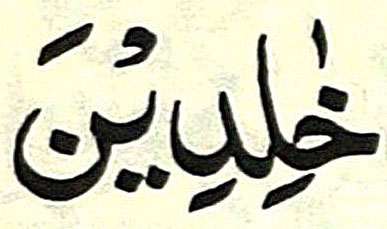 خٰلِدِیْنَ